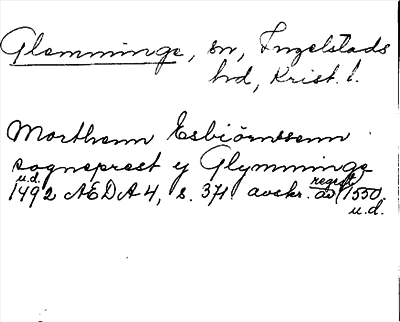 Glemminge, sn, Ingelstads
hd, Krist. l.
Morthenn Esbiörnssenn
sogneprest y Glymminge
u.d.
1492 AEDA 4, s. 371 avskr. av regest 1550.
u.d.